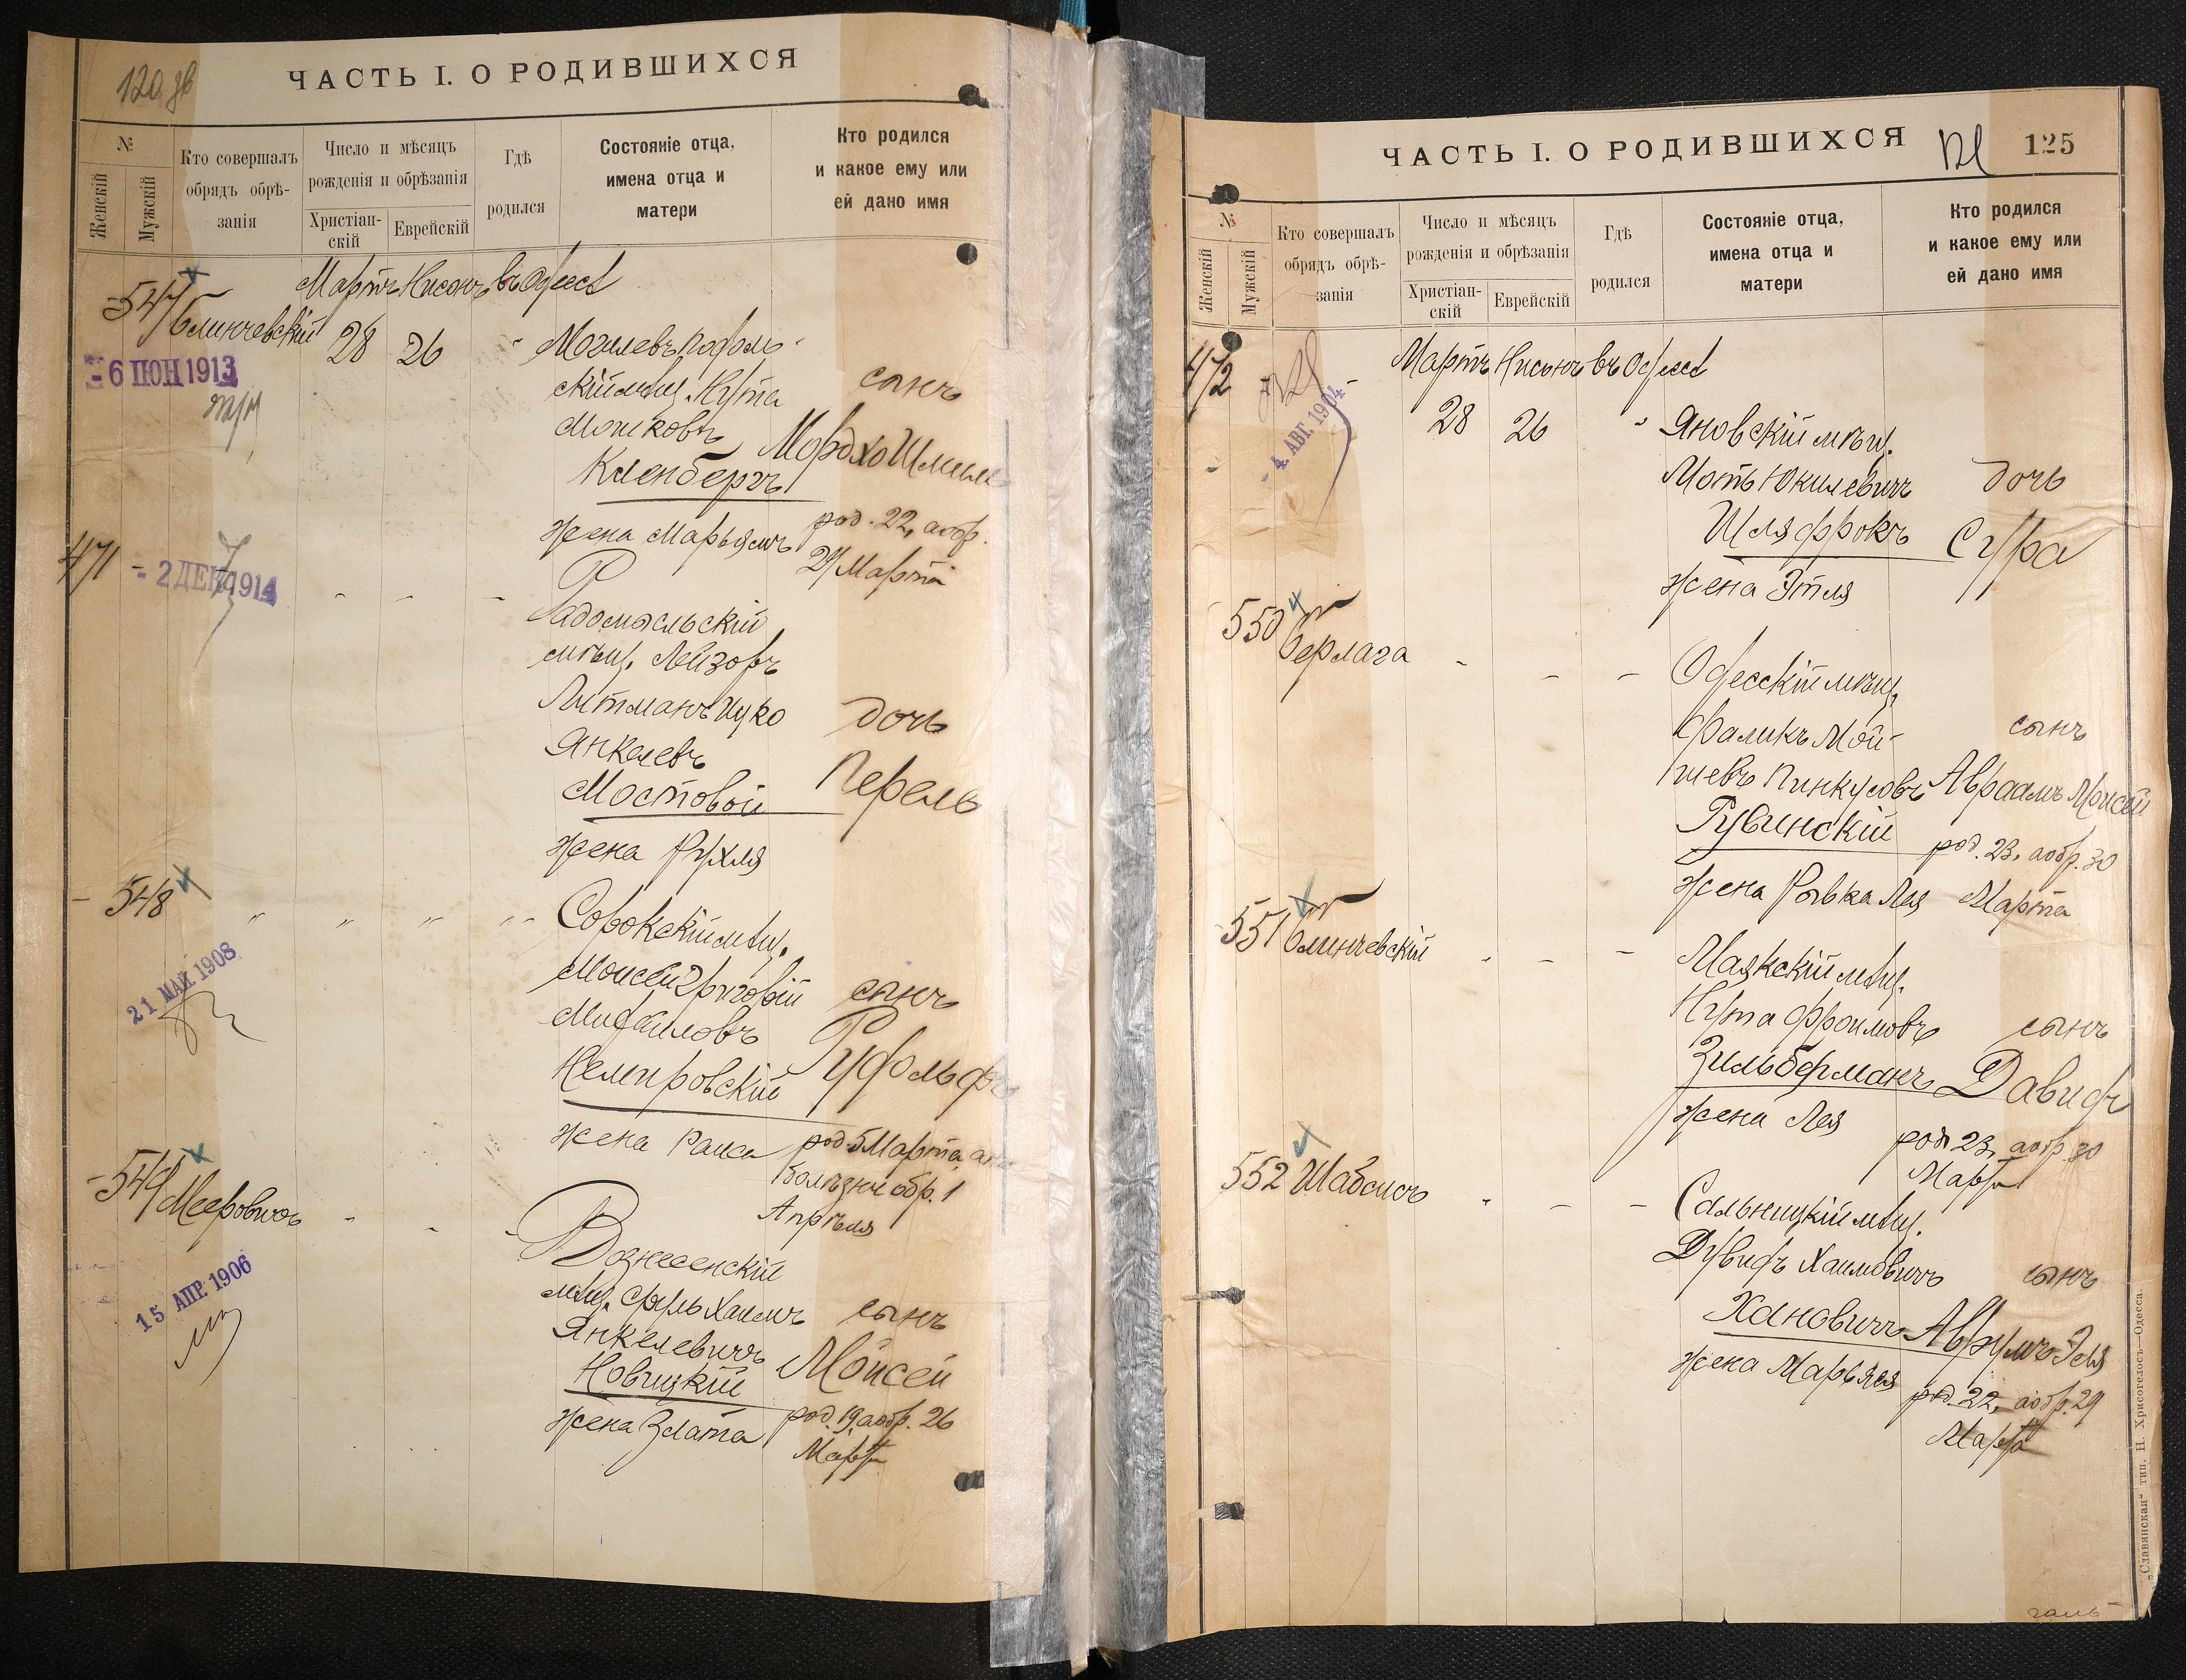 120 об
ЧАСТЬ I. О РОДИВШИХСЯ
№
Женскій
Мужскій
Кто совершалъ
обрядъ обрѣ-
занія
Число и мѣсяцъ
рожденія и обрѣзанія
Христіан-
скій
Еврейскій
Гдѣ
родился
Состояніе отца,
имена отца и
матери
Кто родился
и какое ему или
ей дано имя
Мартъ Нисонъ въ Одессѣ
547 Блинчевскій 28 26 " Могилевъ подоль-
- 6 ІЮН 1913
скій мѣщ. Нута
сынъ
Мошковъ
Мордхо Шмиль
Клейнбергъ
жена Марьямъ
род. 22, а обр.
29 Марта
471 - - - -
- 2 ДЕК 1914
Радомысльскій
мѣщ. Лейзоръ
Литманъ Ицко
дочь
Янкелевъ
Перель
Мостовой
жена Рухля
- 548 " " " " Сорокскій мѣщ.
21 МАЙ 1908
Моисей Григорій
сынъ
Михайловъ
Рудольфъ
Немировскій
жена Раиса
род. 5 Марта, а по
болѣзни обр. 1
Апрѣля
- 549 Мееровичъ - - -
15 АПР. 1906
Вознесенскій
мѣщ. Сруль Хаимъ
сынъ
Янкелевичъ
Моисей
Новицкій
жена Злата
род. 19, а обр. 26
Марта
ЧАСТЬ I. О РОДИВШИХСЯ
121
125
№
Женскій
Мужскій
Кто совершалъ
обрядъ обрѣ-
занія
Число и мѣсяцъ
рожденія и обрѣзанія
Христіан-
скій
Еврейскій
Гдѣ
родился
Состояніе отца,
имена отца и
матери
Кто родился
и какое ему или
ей дано имя
472 - - Мартъ Нисонъ въ Одессѣ
- 4. АВГ. 1904
28 26 " Яновскій мѣщ.
Моть Юкилевичъ
дочь
Шляффрокъ
Сура
жена Этля
550 Берлага - - - Одесскій мѣщ.
Фаликъ Мой-
сынъ
шевъ Пинкусовъ
Авраамъ Моисей
Рувинскій
род. 23, а обр. 30
жена Рывка Лея
Марта
551 Блинчевскій - - - Маякскій мѣщ.
Нута Фроимовъ
сынъ
Зильберманъ
Давидъ
жена Лея
род. 23, а обр. 30
Марта
552 Шабсисъ - - - Сальницкій мѣщ.
Дувидъ Хаимовичъ
сынъ
Хановичъ
Аврумъ Эля
жена Марьяся
род. 22, а обр. 29
Марта
„Славянская“ тип. Н. Хрисогелосъ—Одесса.